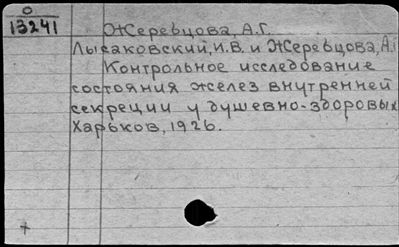 0
13241
Жеревцова, А.Г.
Лысаковский, И.В. и Жеревцова, А.Г
Контрольное исследование
состояния желез внутренней
секреции у душевно-здоровых
Харьков, 1926.
+